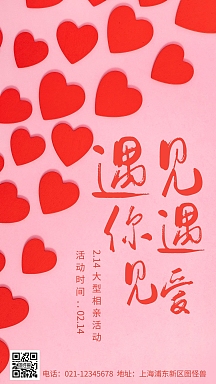 遇见
你遇
见爱
2.14大型相亲活动
活动时间：02.14
电话：021-12345678 地址：上海浦东新区图怪兽